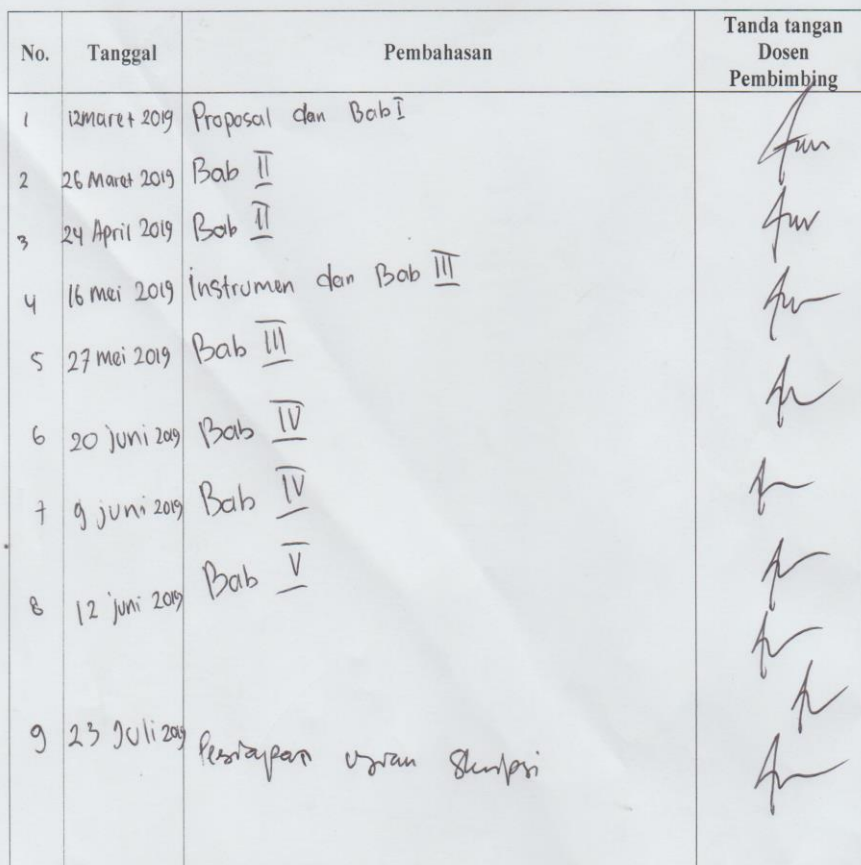 No. Tanggal Pembahasan Tanda tangan Dosen Pembimbing
1 12 maret 2019 Proposal dan Bab I
2 26 Maret 2019 Bab II
3 24 April 2019 Bab II
4 16 mei 2019 instrumen dan Bab III
5 27 mei 2019 Bab III
6 20 juni 2019 Bab IV
7 9 juni 2019 Bab IV
8 12 juni 2019 Bab V
9 23 Juli 2019 Persiapan ujian Skripsi